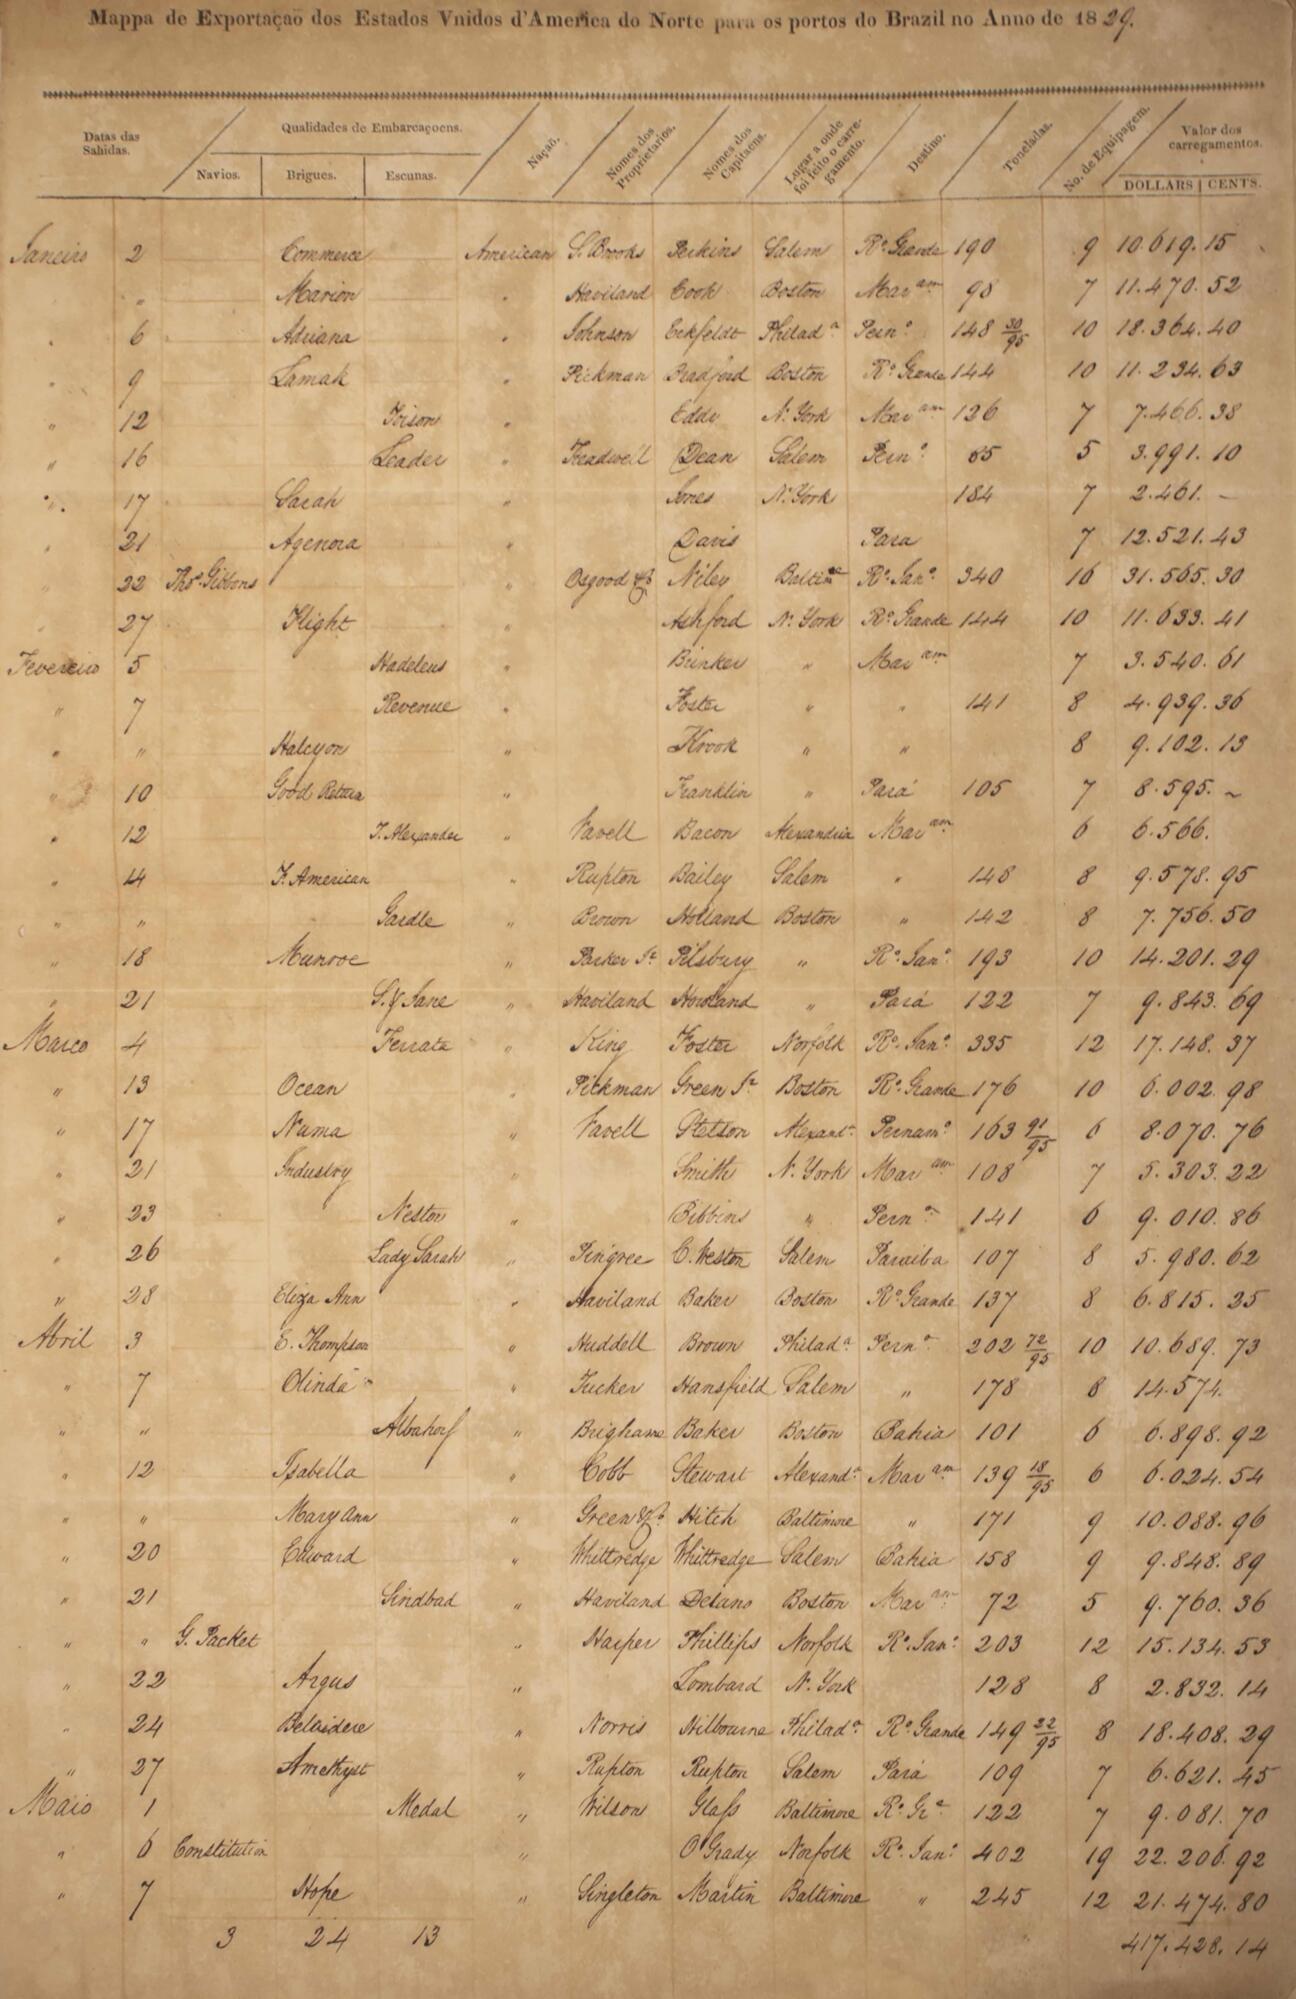 Mappa de Exportaçaõ dos Estados Vnidos d'America do Norte para os portos do Brazil no Anno de 1829.
Datas das Sahidas. Qualidades de Embarcaçoens. Navios. Brigues. Escunas. Naçaõ. Nomes dos Proprietarios. Nomes dos Capitaens. Lugar a onde foi feito o carregamento. Destino. Toneladas. No. de Equipagem. Valor dos carregamentos. DOLLARS CENTS.
Janeiro 2 Commerce American S. Brooks Perkins Salem Rº Grande 190 9 10.619.15
" Marion " Haviland Cook Boston Mar am 98 7 11.470.52
" 6 Adriana " Johnson Eckfeldt Philad a Pern o 148 30/95 10 18.364.40
" 9 Lamak " Pickman Bradford Boston Rº Grande 144 10 11.234.63
" 12 " Eddy N. York Mar am 126 7 7.466.38
" 16 Leader " Treadwell Dean Salem Pern o 65 5 3.991.10
" 17 Sarah " Jones N. York 184 7 2.461. –
" 21 Agenora " Davis Para 7 12.521.43
" 22 Thos Gibbons " Osgood & Co Baltim re Rº Jan o 340 16 31.565.30
" 27 Flight " Ashford N. York Rº Grande 144 10 11.633.41
Fevereiro 5 " Brinker " Mar am 7 3.540.61
" 7 Revenue " Foster " " 141 8 4.939.36
" " Halcyon " Krook " " 8 9.102.13
" 10 Good Return " Franklin " Pará 105 7 8.595. ~
" 12 T. Alexander " Vavell Bacon Alexandria Mar am 6 6.566.
" 14 F. American " Rupton Bailey Salem " 148 8 9.578.95
" " " Brown Holland Boston " 142 8 7.756.50
" 18 Munroe " Parker Jr Pilsbury " Rº Jan o 193 10 14.201.29
" 21 S. & Jane " Haviland Howland " Pará 122 7 9.843.69
Marco 4 Ferrata " King Foster Norfolk Rº Jan o 335 12 17.148.37
" 13 Ocean " Pickman Green Jr Boston Rº Grande 176 10 6.002.98
" 17 Numa " Vavell Stetson Alexand a Pernam o 163 91/95 6 8.070.76
" 21 Industry " Smith N. York Mar am 108 7 5.303.22
" 23 Nestor " Bibbins " Pern o 141 6 9.010.86
" 26 Lady Sarah " Pingree C. Weston Salem Paraiba 107 8 5.980.62
" 28 Eliza Ann " Haviland Baker Boston Rº Grande 137 8 6.815.25
Abril 3 E. Thompson " Huddell Brown Philad a Pern o 202 72/95 10 10.689.73
" 7 Olinda " Tucker Hansfield Salem " 178 8 14.574.
" " " Brigham Baker Boston Bahia 101 6 6.898.92
" 12 Isabella " Cobb Stewart Alexand a Mar am 139 18/95 6 6.024.54
" " Mary Ann " Green & Co Hitch Baltimore " 171 9 10.088.96
" 20 Edward " Whittredge Whittredge Salem Bahia 158 9 9.848.89
" 21 Sindbad " Haviland Delano Boston Mar am 72 5 9.760.36
" " G. Packet " Harper Phillips Norfolk Rº Jan o 203 12 15.134.53
" 22 Argus " Lombard N. York 128 8 2.832.14
" 24 Belvidere " Norris Milbourne Philad a Rº Grande 149 22/95 8 18.408.29
" 27 Amethyst " Rupton Rupton Salem Pará 109 7 6.621.45
Maio 1 Medal " Wilson Glass Baltimore Rº Gr e 122 7 9.081.70
" 6 Constitution " O'Grady Norfolk Rº Jan o 402 19 22.206.92
" 7 Hope " Singleton Martin Baltimore " 245 12 21.474.80
3 24 13 417.428.14